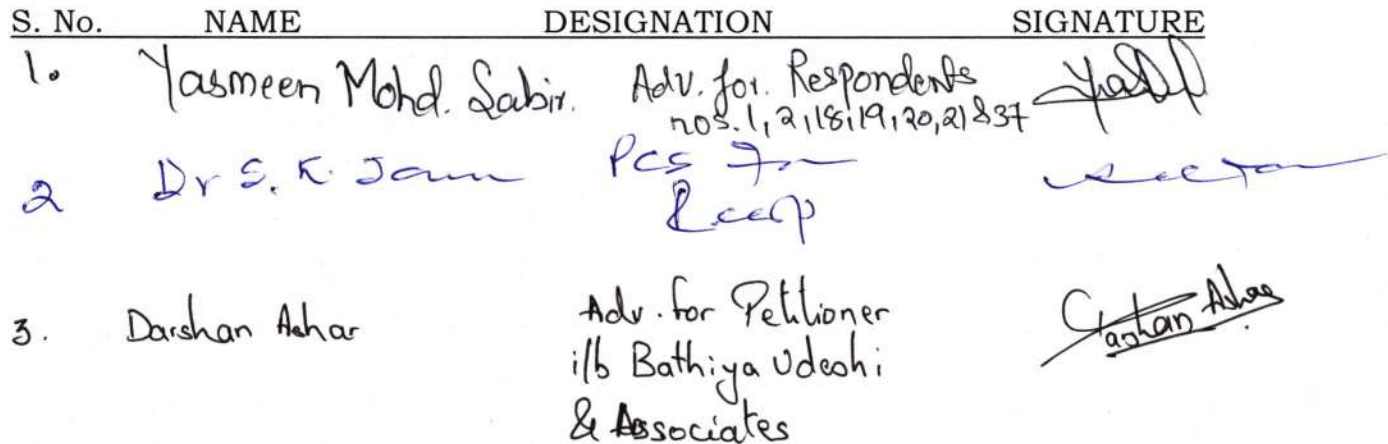 S. No. NAME DESIGNATION SIGNATURE
1. Yasmeen Mohd. Sabir. Adv. for. Respondents
nos. 1, 2, 18, 19, 20, 21 & 37
2 Dr S. K. Jain PCS For
3. Darshan Ashar Adv. for Petitioner Darshan Ashar
i/b Bathiya Udeshi
& Associates